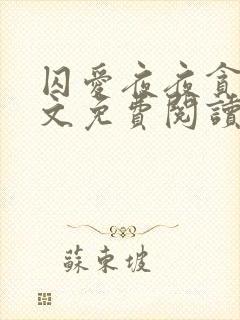 囚愛夜夜貪
文免費閱讀
蘇東坡